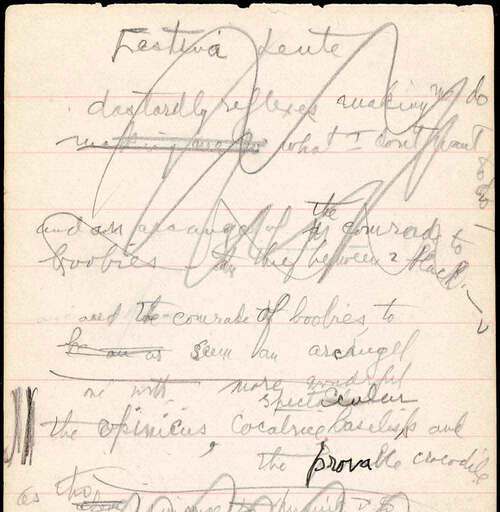 Festina Lente
dastardly reflexes making me do
making me do what I don't want
to do
and an archangel of the comrade to
boobies thief between 2 black
and the comrade of boobies, to
seem an archangel
one with more wonderful
spectacular
the opinicus, cocatrice basilisk and
the provable crocodile
as tho